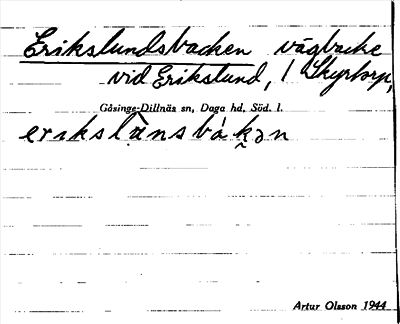 Erikslundsbacken vägbacke
vid Erikslund, 1 Skyrtorp,
Gåsinge-Dillnäs sn, Daga hd, Söd. l.
erıkslànsbák̬ən
Artur Olsson 1944